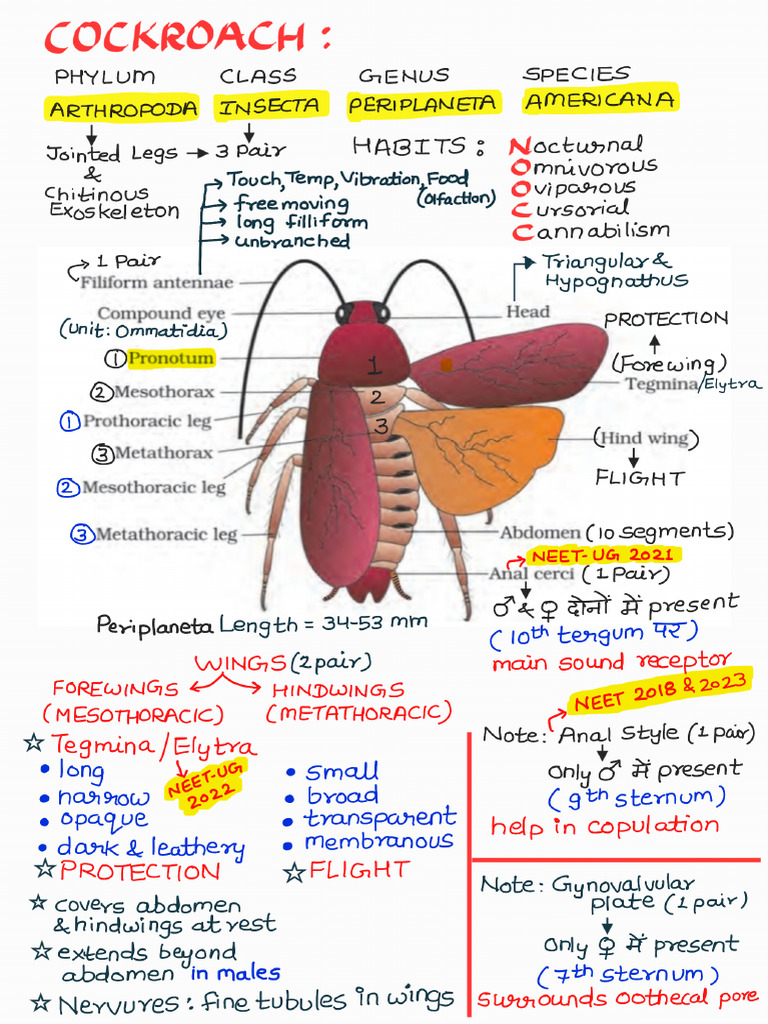 COCKROACH :
PHYLUM CLASS GENUS SPECIES
ARTHROPODA INSECTA PERIPLANETA AMERICANA
Jointed Legs → 3 Pair
&
Chitinous
Exoskeleton
HABITS :
Nocturnal
Omnivorous
Oviparous
Cursorial
Cannabilism
Touch, Temp, Vibration, Food
(Olfaction)
free moving
long filliform
unbranched
1 Pair
Filiform antennae
Compound eye
(Unit: Ommatidia)
① Pronotum
② Mesothorax
① Prothoracic leg
③ Metathorax
② Mesothoracic leg
③ Metathoracic leg
1
2
3
Triangular &
Hypognathus
Head
PROTECTION
(Forewing)
Tegmina/Elytra
(Hind wing)
FLIGHT
Abdomen (10 segments)
NEET-UG 2021
Anal cerci (1 Pair)
♂ & ♀ दोनों में present
(10th tergum पर)
main sound receptor
Periplaneta Length = 34-53 mm
WINGS (2 pair)
FOREWINGS HINDWINGS
(MESOTHORACIC) (METATHORACIC)
☆ Tegmina/Elytra
NEET-UG
2022
• long
• narrow
• opaque
• dark & leathery
☆ PROTECTION
• small
• broad
• transparent
• membranous
☆ FLIGHT
☆ covers abdomen
& hindwings at rest
☆ extends beyond
abdomen in males
☆ Nervures : fine tubules in wings
NEET 2018 & 2023
Note: Anal Style (1 pair)
only ♂ में present
(9th sternum)
help in copulation
Note: Gynovalvular
plate (1 pair)
only ♀ में present
(7th sternum)
surrounds oothecal pore